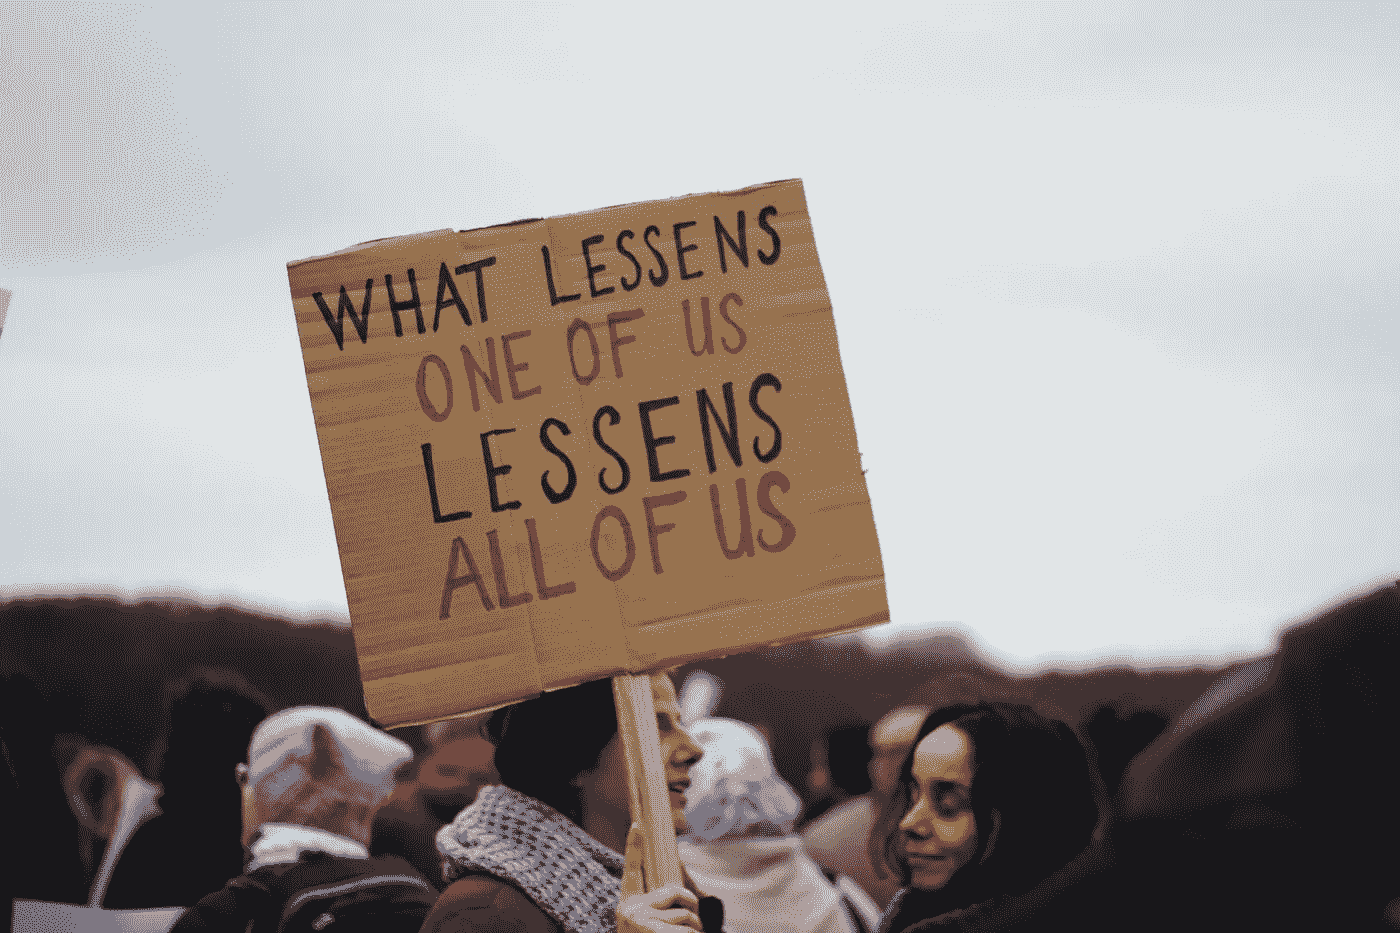 WHAT LESSENS
ONE OF US
LESSENS
ALL OF US